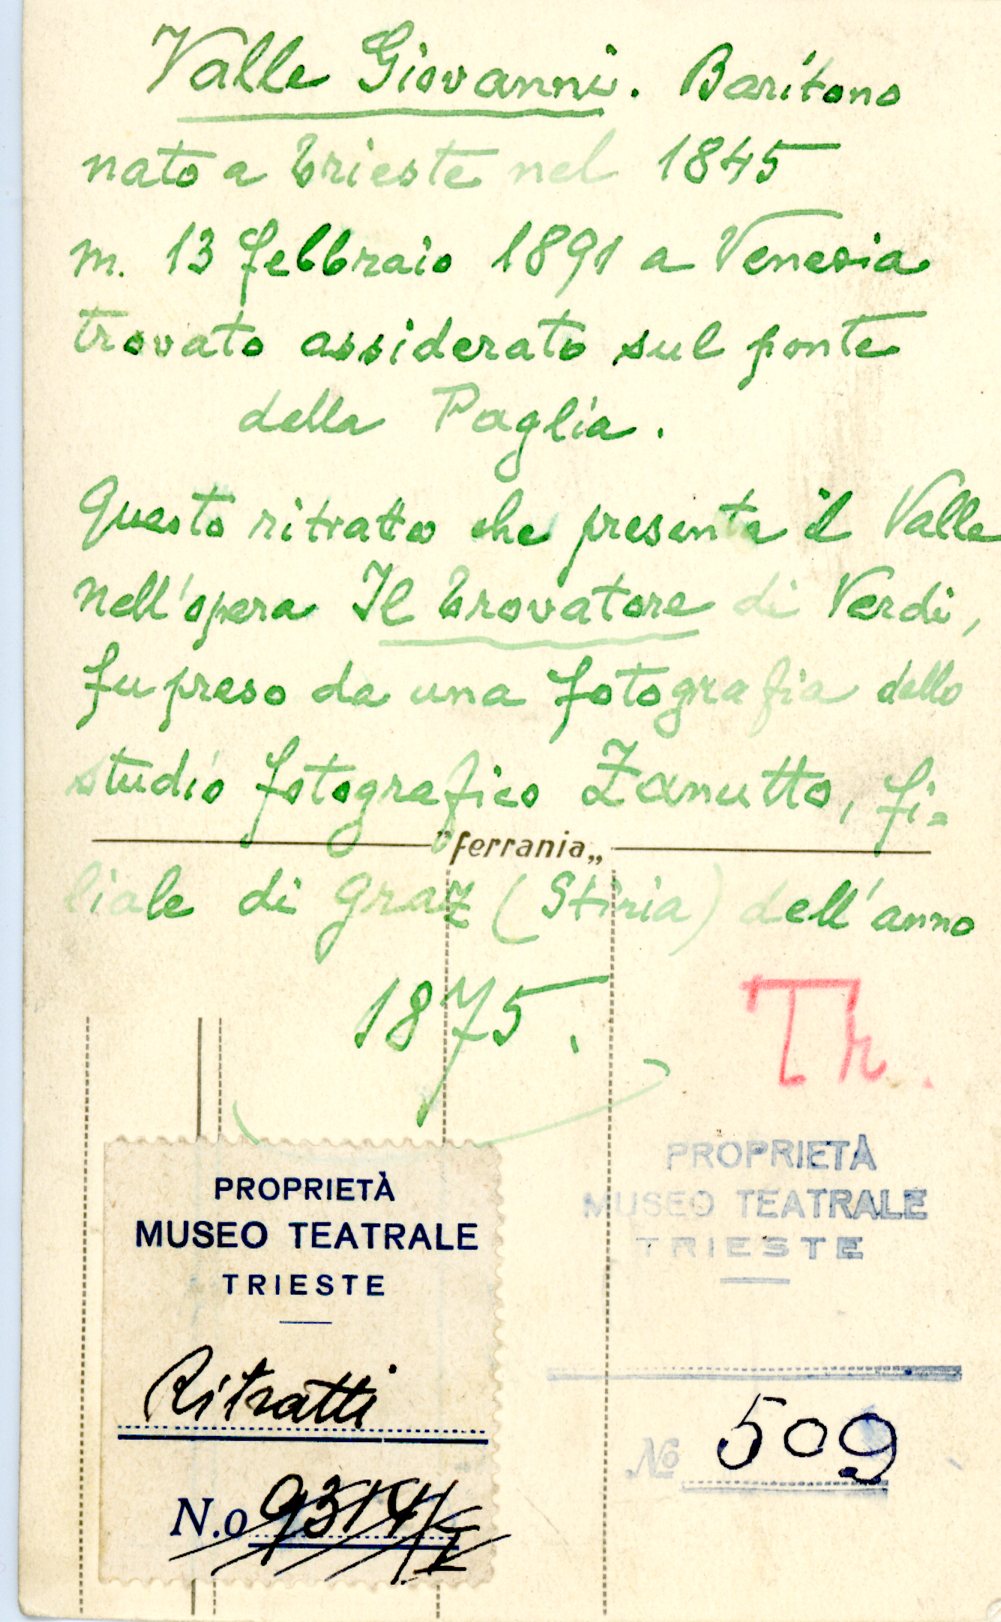 Valle Giovanni. Baritono
nato a Trieste nel 1845
m. 13 febbraio 1891 a Venezia
trovato assiderato sul ponte
della Paglia.
Questo ritratto che presenta il Valle
nell'opera Il Trovatore di Verdi,
fu preso da una fotografia dello
studio fotografico Zanutto, fi=
"ferrania„
liale di Graz (Stiria) dell'anno
1875.
Tr.
PROPRIETÀ
MUSEO TEATRALE
TRIESTE
Ritratti
N.o 9314/I
PROPRIETÀ
MUSEO TEATRALE
TRIESTE
No 509